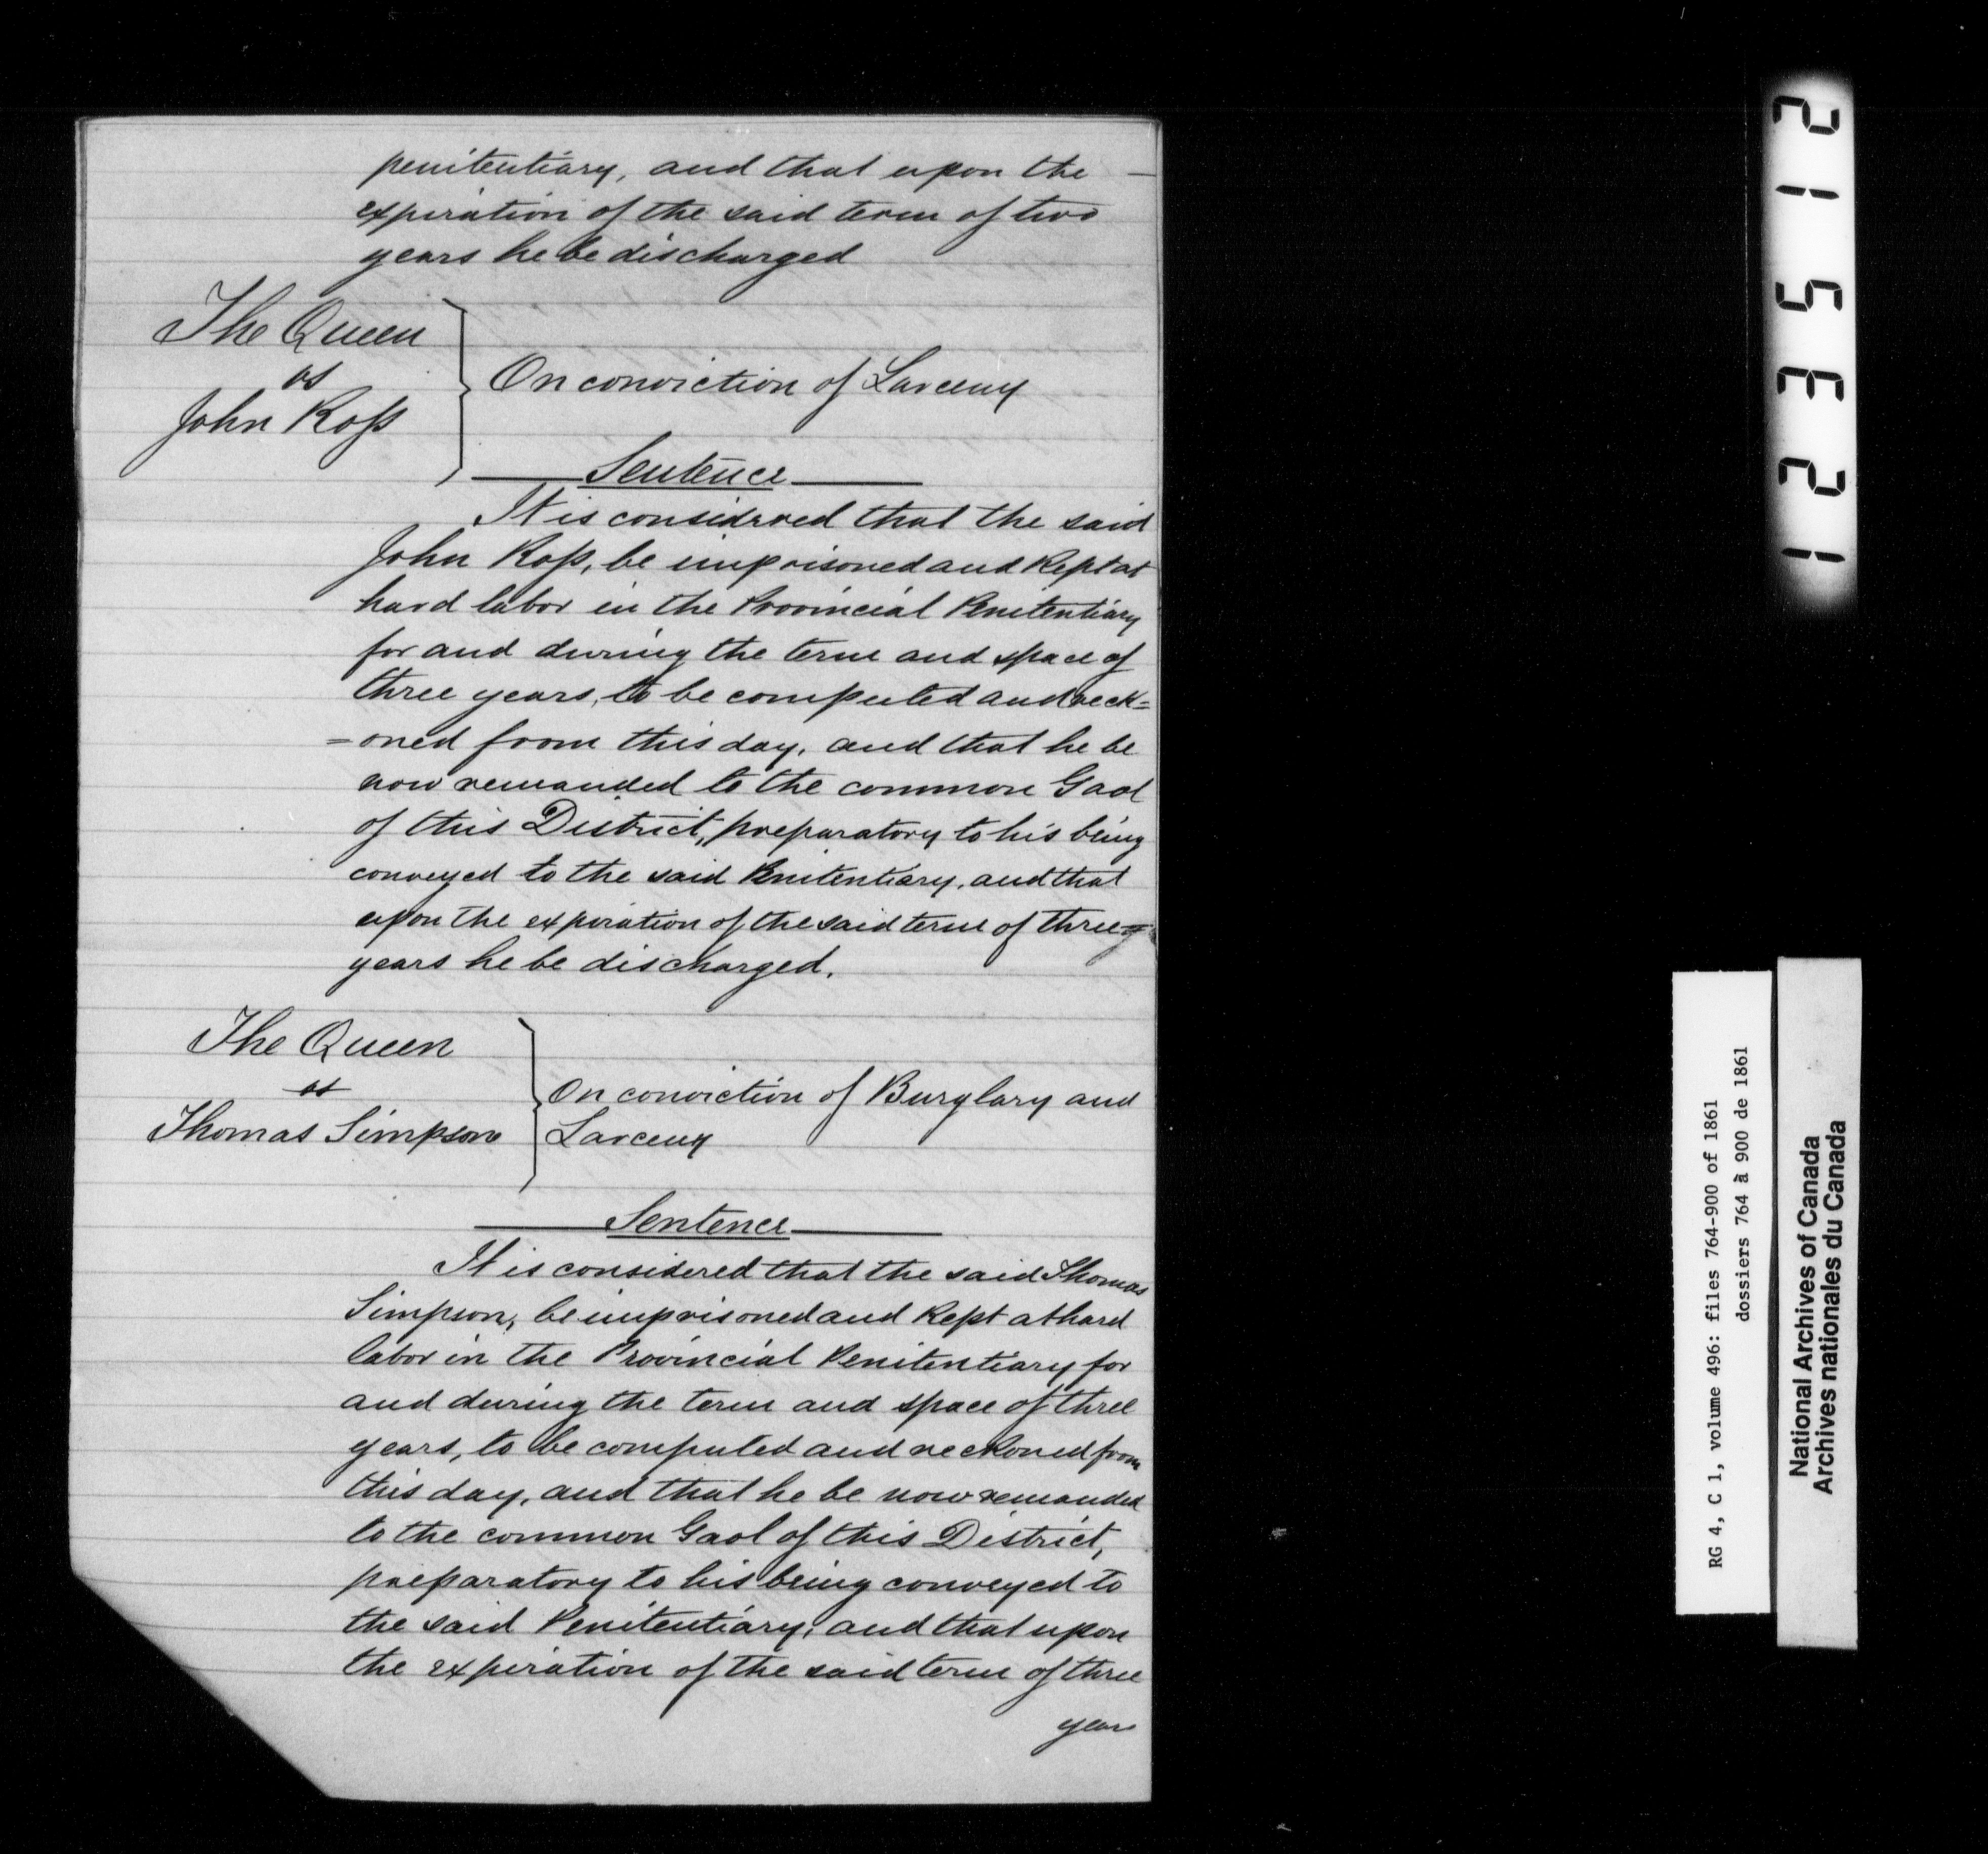 penitentiary, and that upon the —
expiration of the said term of two
years he be discharged
The Queen
vs
John Ross
On conviction of Larceny
Sentence
It is considered that the said
John Ross, be imprisoned and Kept at
hard labor in the Provincial Penitentiary
for and during the term and space of
three years, to be computed and reck=
=oned from this day, and that he be
now remanded to the common Gaol
of this District, preparatory to his being
conveyed to the said Penitentiary, and that
upon the expiration of the said term of three
years he be discharged.
The Queen
vs
Thomas Simpson
On conviction of Burglary and
Larceny
Sentence
It is considered that the said Thomas
Simpson, be imprisoned and Kept at hard
labor in the Provincial Penitentiary for
and during the term and space of three
years, to be computed and reckoned from
this day, and that he be now remanded
to the common Gaol of this District,
preparatory to his being conveyed to
the said Penitentiary, and that upon
the expiration of the said term of three
years
123512
RG 4, C 1, volume 496: files 764-900 of 1861
dossiers 764 à 900 de 1861
National Archives of Canada
Archives nationales du Canada